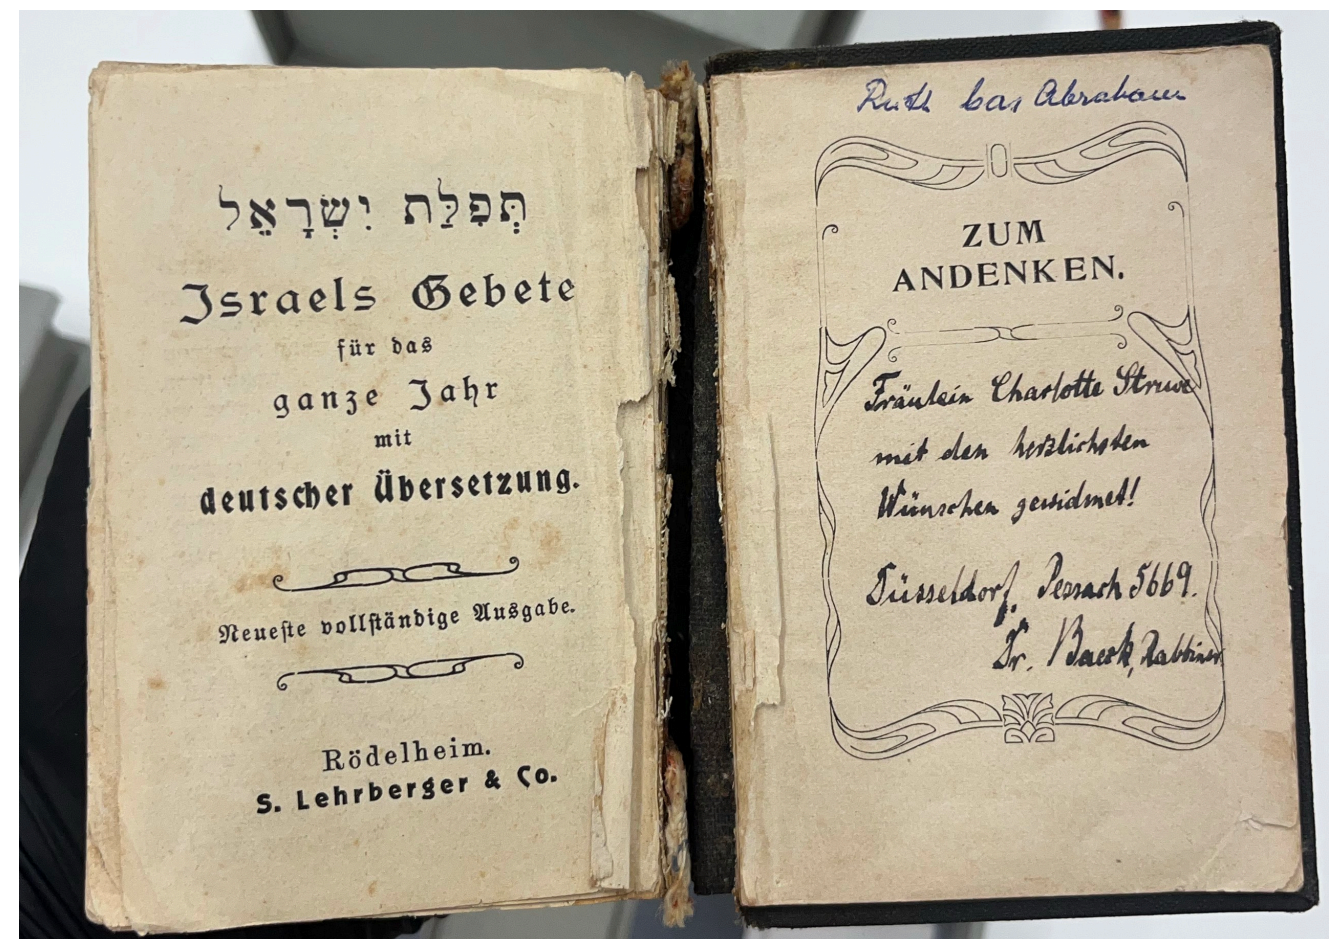 תְּפִלַּת יִשְׂרָאֵל
Israels Gebete
für das
ganze Jahr
mit
deutscher Übersetzung.
Neueste vollständige Ausgabe.
Rödelheim.
S. Lehrberger & Co.
Ruth bas Abraham
ZUM
ANDENKEN.
Fräulein Charlotte Struwe
mit den herzlichsten
Wünschen gewidmet!
Düsseldorf, Pessach 5669.
Dr. Baeck, Rabbiner